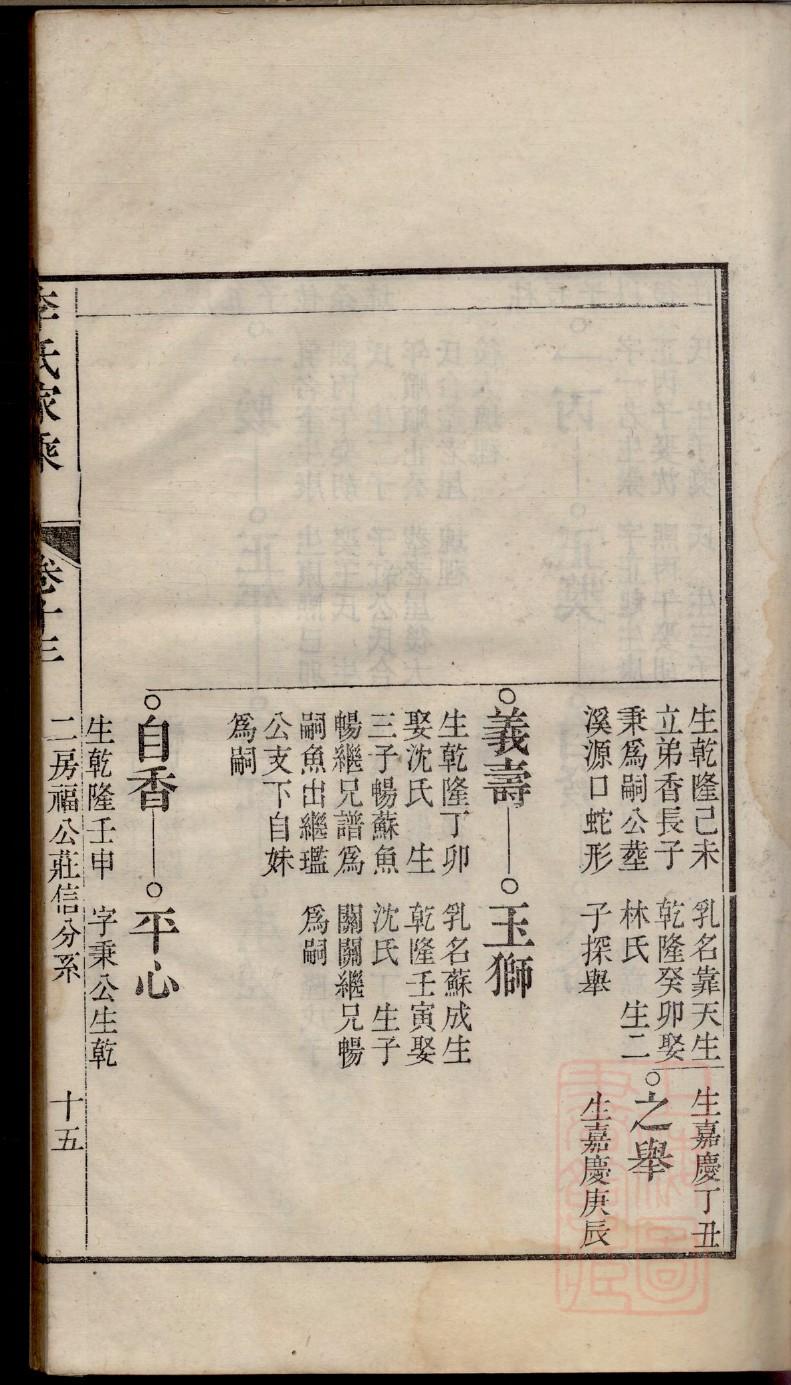 生乾隆己未
立弟香長子
秉爲嗣公塟
溪源口蛇形
乳名靠天生
乾隆癸卯娶
林氏　生二
子探舉
生嘉慶丁丑
之舉
生嘉慶庚辰
義壽
生乾隆丁卯
娶沈氏　生
三子暢蘇魚
暢繼兄譜爲
嗣魚出繼瑥
公支下自妹
爲嗣
玉獅
乳名蘇成生
乾隆壬寅娶
沈氏　生子
關關繼兄暢
爲嗣
自香
生乾隆壬申
平心
字秉公生乾
李氏家乘
卷十三
二房福公莊信分系
十五